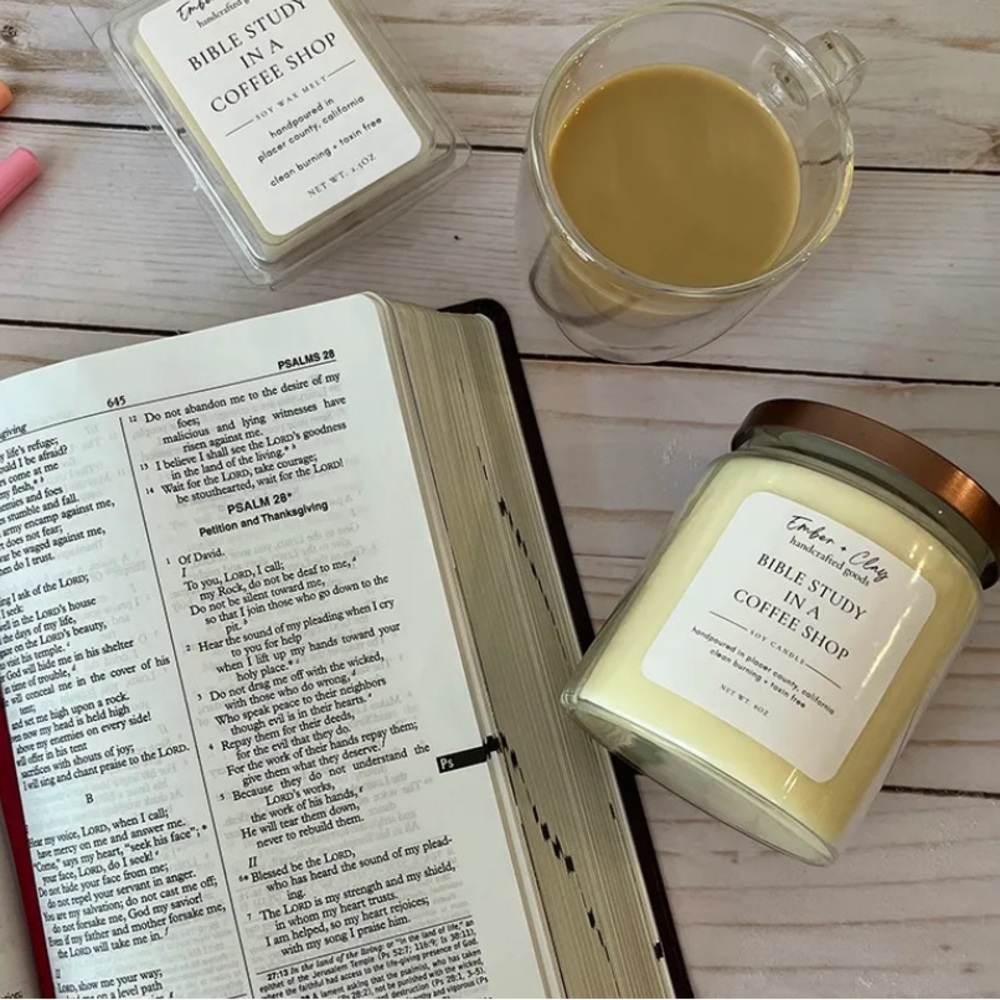 handcrafted goods
BIBLE STUDY
IN A
COFFEE SHOP
SOY WAX MELT
handpoured in
placer county, california
clean burning + toxin free
NET WT. 2.5OZ
645
PSALMS 28
giving
life's refuge;
ould I be afraid?
s come at me
my flesh,
emies and foes
stumble and fall.
army encamp against me,
does not fear;
war be waged against me,
n do I trust.
ing I ask of the LORD;
I seek:
well in the LORD's house
the days of my life,
gaze on the LORD's beauty,
visit his temple.
God will hide me in his shelter
time of trouble,
will conceal me in the cover of his
tent;
and set me high upon a rock.
en now my head is held high
above my enemies on every side!
will offer in his tent
sacrifices with shouts of joy;
I will sing and chant praise to the LORD.
B
Hear my voice, LORD, when I call;
have mercy on me and answer me.
"Come," says my heart, "seek his face";
your face, LORD, do I seek!
Do not hide your face from me;
do not repel your servant in anger.
You are my salvation; do not cast me off;
do not forsake me, God my savior!
Even if my father and mother forsake me,
the LORD will take me in.
II
LORD, show me your way;
me on a level path
12 Do not abandon me to the desire of my
foes;
malicious and lying witnesses have
risen against me.
13 I believe I shall see the LORD's goodness
in the land of the living.
14 Wait for the LORD, take courage;
be stouthearted, wait for the LORD!
PSALM 28*
Petition and Thanksgiving
1 Of David.
I
To you, LORD, I call;
my Rock, do not be deaf to me,
Do not be silent toward me,
so that I join those who go down to the
pit.
2 Hear the sound of my pleading when I cry
to you for help
when I lift up my hands toward your
holy place.
3 Do not drag me off with the wicked,
with those who do wrong,
Who speak peace to their neighbors
though evil is in their hearts.
4 Repay them for their deeds,
for the evil that they do.
For the work of their hands repay them;
give them what they deserve!
5 Because they do not understand the
LORD's works,
the work of his hands,
He will tear them down,
never to rebuild them.
II
6* Blessed be the LORD,
who has heard the sound of my plead-
ing.
7 The LORD is my strength and my shield,
in whom my heart trusts.
I am helped, so my heart rejoices;
with my song I praise him.
27:13 In the land of the living: or "in the land of life," an
epithet of the Jerusalem Temple (Ps 52:7; 116:9; Is 38:11),
where the faithful had access to the life-giving presence of God.
A lament asking that the psalmist, who has taken
(Ps 28:2), not be punished with the wicked,
destruction (Ps 28:1, 3–5).
Ps
Ember + Clay
handcrafted goods
BIBLE STUDY
IN A
COFFEE SHOP
SOY CANDLE
handpoured in placer county, california
clean burning + toxin free
NET WT. 9OZ